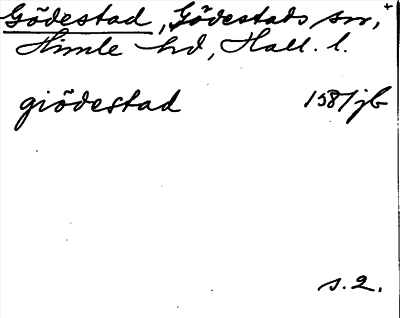 Gödestad, Gödestads sn, +
Himle hd, Hall. l.
giödestad 1581 jb
s. 2.